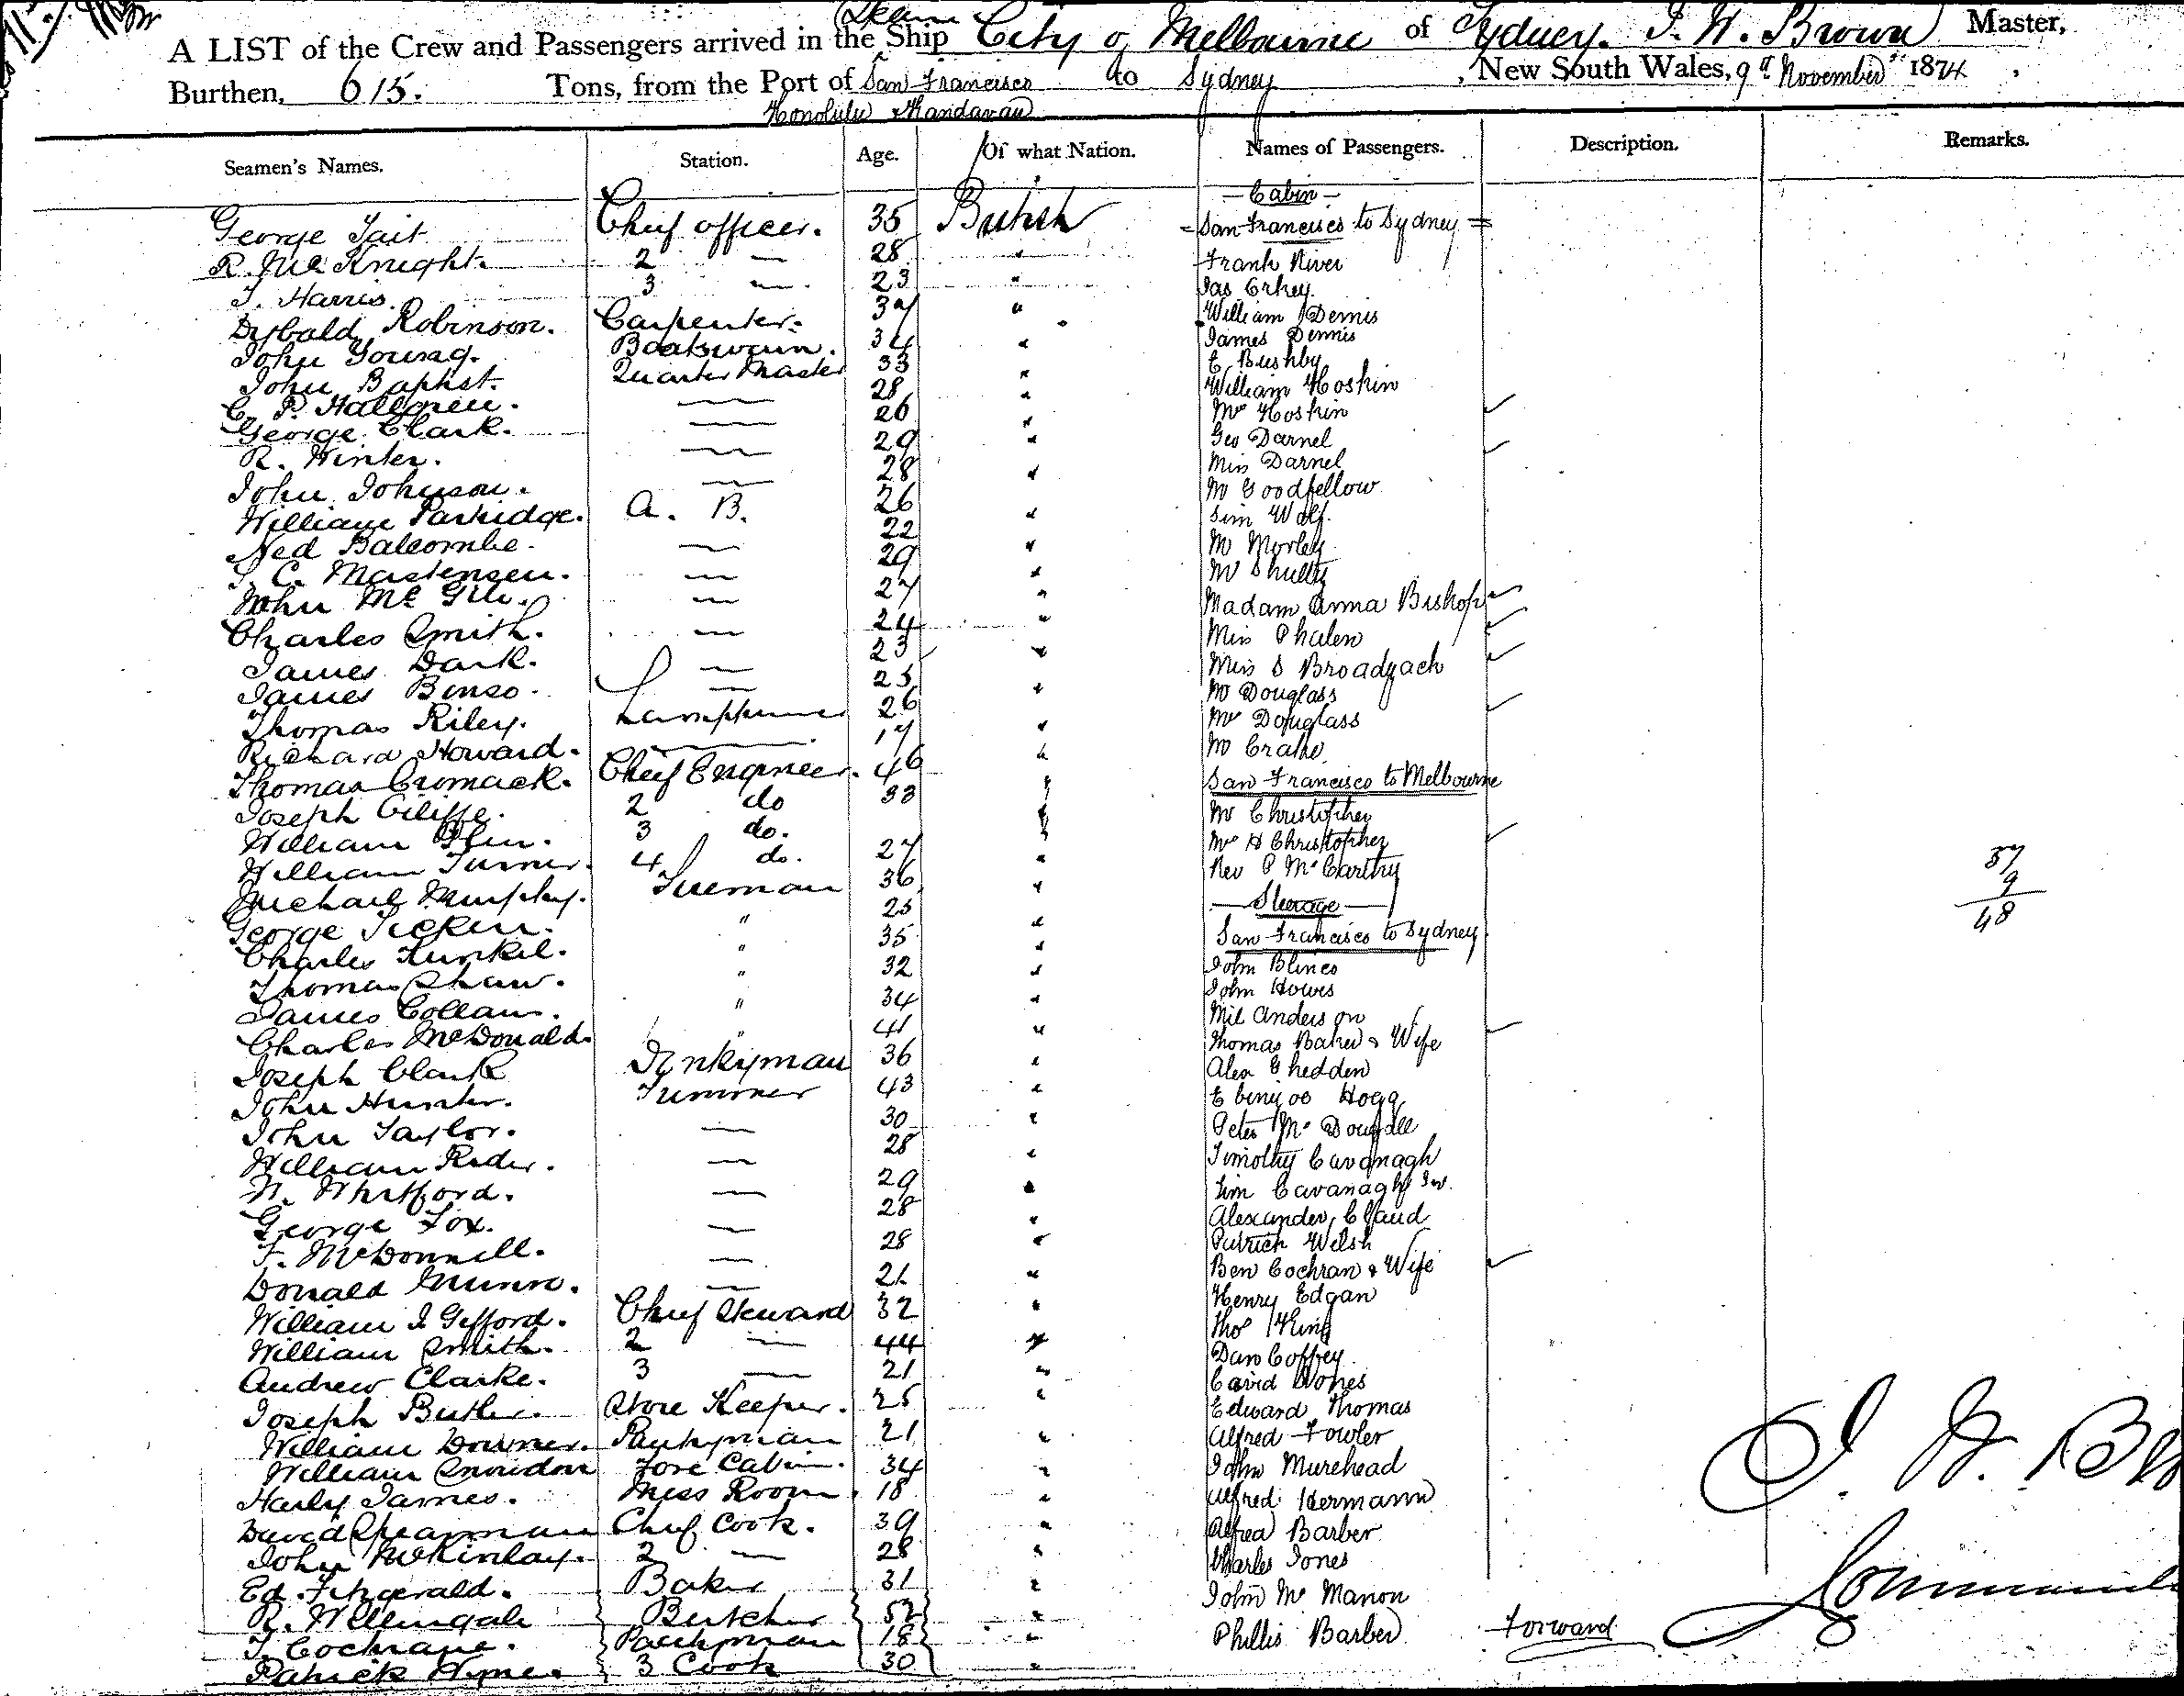 Steam
A LIST of the Crew and Passengers arrived in the Ship City of Melbourne of Sydney. J. W. Brown Master,
Burthen, 615. Tons, from the Port of San Francisco to Sydney, New South Wales, 9th November 1874,
Honolulu & Kandavau
Seamen's Names. Station. Age. Of what Nation. Names of Passengers. Description. Remarks.
— Cabin —
George Tait Chief officer. 35 British = San Francisco to Sydney =
R. McKnight. 2 — 28 " Frank River
T. Harris. 3 — 23 " Jas
Robinson. Carpenter. 37 " William Dennis
John Young. Boatswain. 34 " James Dennis
John Baptist. Quarter Master 33 " E Bushby
C. P. Hallgreen. — 28 " William Hoskin
George Clark. — 26 " Mrs Hoskin
R. Winter. — 29 " Geo Darnel
John Johnson. — 28 " Miss Darnel
William Partridge. A. B. 26 " Mr Goodfellow
Ned Balcombe. — 22 " Sim Wolf.
C. Mastensen. — 29 " Mr Morley
John Mc Gill. — 27 " Mr Shultz
Charles Smith. — 24 " Madam Anna Bishop
James Dark. — 23 " Miss Phalen
James Binso. — 25 " Miss S
Thomas Riley. Lamptrimmer 26 " Mr Douglass
Richard Howard. — 17 " Mrs Douglass
Thomas Cromack. Chief Engineer. 46 " Mr
Joseph 2 do 33 " San Francisco to Melbourne
William 3 do. " Mr Christopher
William Turner. 4 do. 27 " Mrs H Christopher
Michael Murphy. Fireman 36 " Rev P McCarthy
George " 25 " — Steerage —
Charles Kunkel. " 35 " San Francisco to Sydney
Thomas Shaw. " 32 " John Blines
James Collans. " 34 " John Howes
Charles McDonald. " 41 " Mil Anderson
Joseph Clark Donkeyman 36 " Thomas Baker & Wife
John Hunter. Trimmer 43 " Alex Shedden
John Taylor. — 30 " Hogg
William Rider. — 28 " Peter McDougall
W. Whitford. — 29 " Timothy Cavanagh
George Fox. — 28 " Tim Cavanagh Jnr.
F. McDonnell. — 28 " Alexander Claud
Donald Munro. — 21 " Patrick Welsh
William J Gifford. Chief Steward 32 " Ben Cochran & Wife
William Smith. 2 — 44 " Henry Edgan
Andrew Clarke. 3 — 21 " Thos King
Joseph Butler. Store Keeper. 25 " Dan Coffey.
William Downer. Pantryman 21 " David Jones
William Snowdon Fore Cabin. 34 " Edward Thomas
Harly James. Mess Room 18 " Alfred Fowler
David Spearman Chief Cook. 39 " John Murehead
John McKinlay. 2 — 28 " Alfred Hermann
Ed. Fitzgerald. Baker 31 " Alfred Barber
R. Willingale Butcher 52 " Charles Jones
T. Cochrane. Pantryman 18 " John McManon
Patrick Hynes. 3 Cook 30 " Phillis Barber
37
9
48
Forward
J. W.